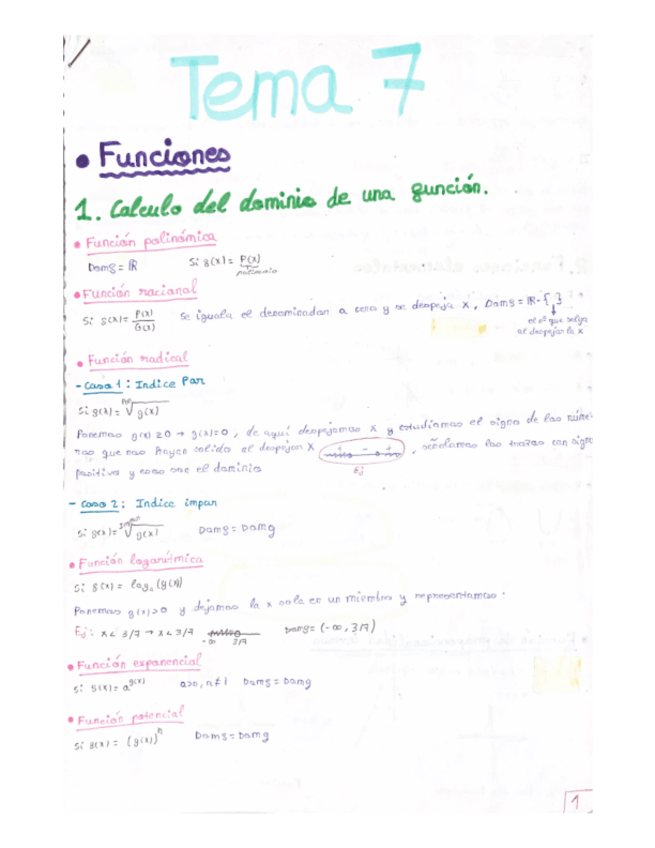 Tema 7
• Funciones
1. Calculo del dominio de una función.
• Función polinómica
Domf = ℝ Si f(x) = P(x)
polinomio
• Función racional
Si f(x) = P(x)/G(x) Se iguala el denominador a cero y se despeja x, Domf = ℝ - { }
el nº que salga
al despejar la x
• Función radical
- Caso 1: Indice Par
Si f(x) = par√g(x)
Ponemos g(x) ≥ 0 → g(x) = 0, de aquí despejamos x y estudiamos el signo de los núme-
ros que nos hayan salido al despejar x - + , señalamos los trozos con signo
positivo y esos son el dominio
Ej
- Caso 2: Indice impar
Si f(x) = impar√g(x) Domf = Domg
• Función logarítmica
Si f(x) = logₐ (g(x))
Ponemos g(x) > 0 y dejamos la x sola en un miembro y representamos:
Ej: x < 3/7 → x < 3/7 -∞ 3/7 Domf = (-∞, 3/7)
• Función exponencial
Si f(x) = a^g(x) a>0, n≠1 Domf = Domg
• Función potencial
Si f(x) = (g(x))^n Domf = Domg
1